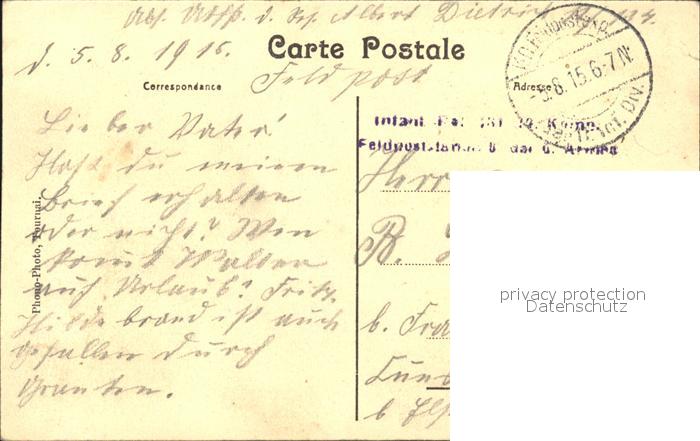 Abs. Uoffz. d. Res. Albert Dietrich
d. 5. 8. 1915.
Carte Postale
Feldpost
Correspondance
Adresse
5.8.15.6-7 N
Infant. 10. Komp.
Feldpoststation 8 der 6. Armee
Lieber Vater!
Hast du meinen
Brief erhalten
oder nicht? Wen
komt Walder
auf Urlaub? Fritz
Hildebrand ist auch
gefallen durch
Granten.
Phono-Photo, Tournai.
Herr
B.
b. Fra
b
privacy protection
Datenschutz